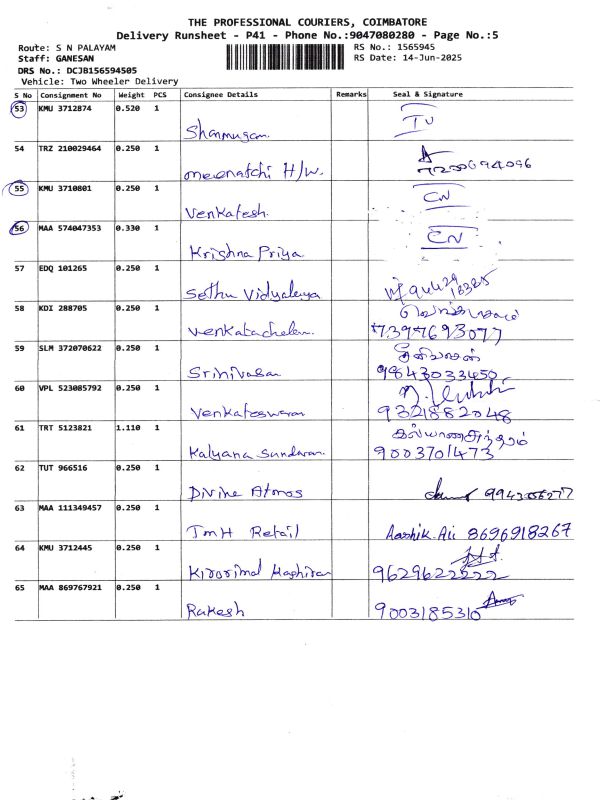 THE PROFESSIONAL COURIERS, COIMBATORE
Delivery Runsheet - P41 - Phone No.:9047080280 - Page No.:5
Route: S N PALAYAM
RS No.: 1565945
Staff: GANESAN
RS Date: 14-Jun-2025
DRS No.: DCJB156594505
Vehicle: Two Wheeler Delivery
S No Consignment No Weight PCS Consignee Details Remarks Seal & Signature
53 KMU 3712874 0.520 1
Shanmugam IU
54 TRZ 210029464 0.250 1
meenatchi H/W.
55 KMU 3710801 0.250 1
Venkatesh. CN
56 MAA 574047353 0.330 1
Krishna Priya CN
57 EDQ 101265 0.250 1
Sethu Vidyalaya
58 KDI 288705 0.250 1
Venkatachalam. 7397693077
59 SLM 372070622 0.250 1
Srinivasan 9843033450
60 VPL 523085792 0.250 1
Venkateswaran 9321882048
61 TRT 5123821 1.110 1
கல்யாணசுந்தரம்
Kalyana Sundaram. 9003701473
62 TUT 966516 0.250 1
Divine Atmos
63 MAA 111349457 0.250 1
TMH Retail Aashik. Ali 8696918267
64 KMU 3712445 0.250 1
Kirorimal Kashiram 9629622222
65 MAA 869767921 0.250 1
Rakesh 9003185310